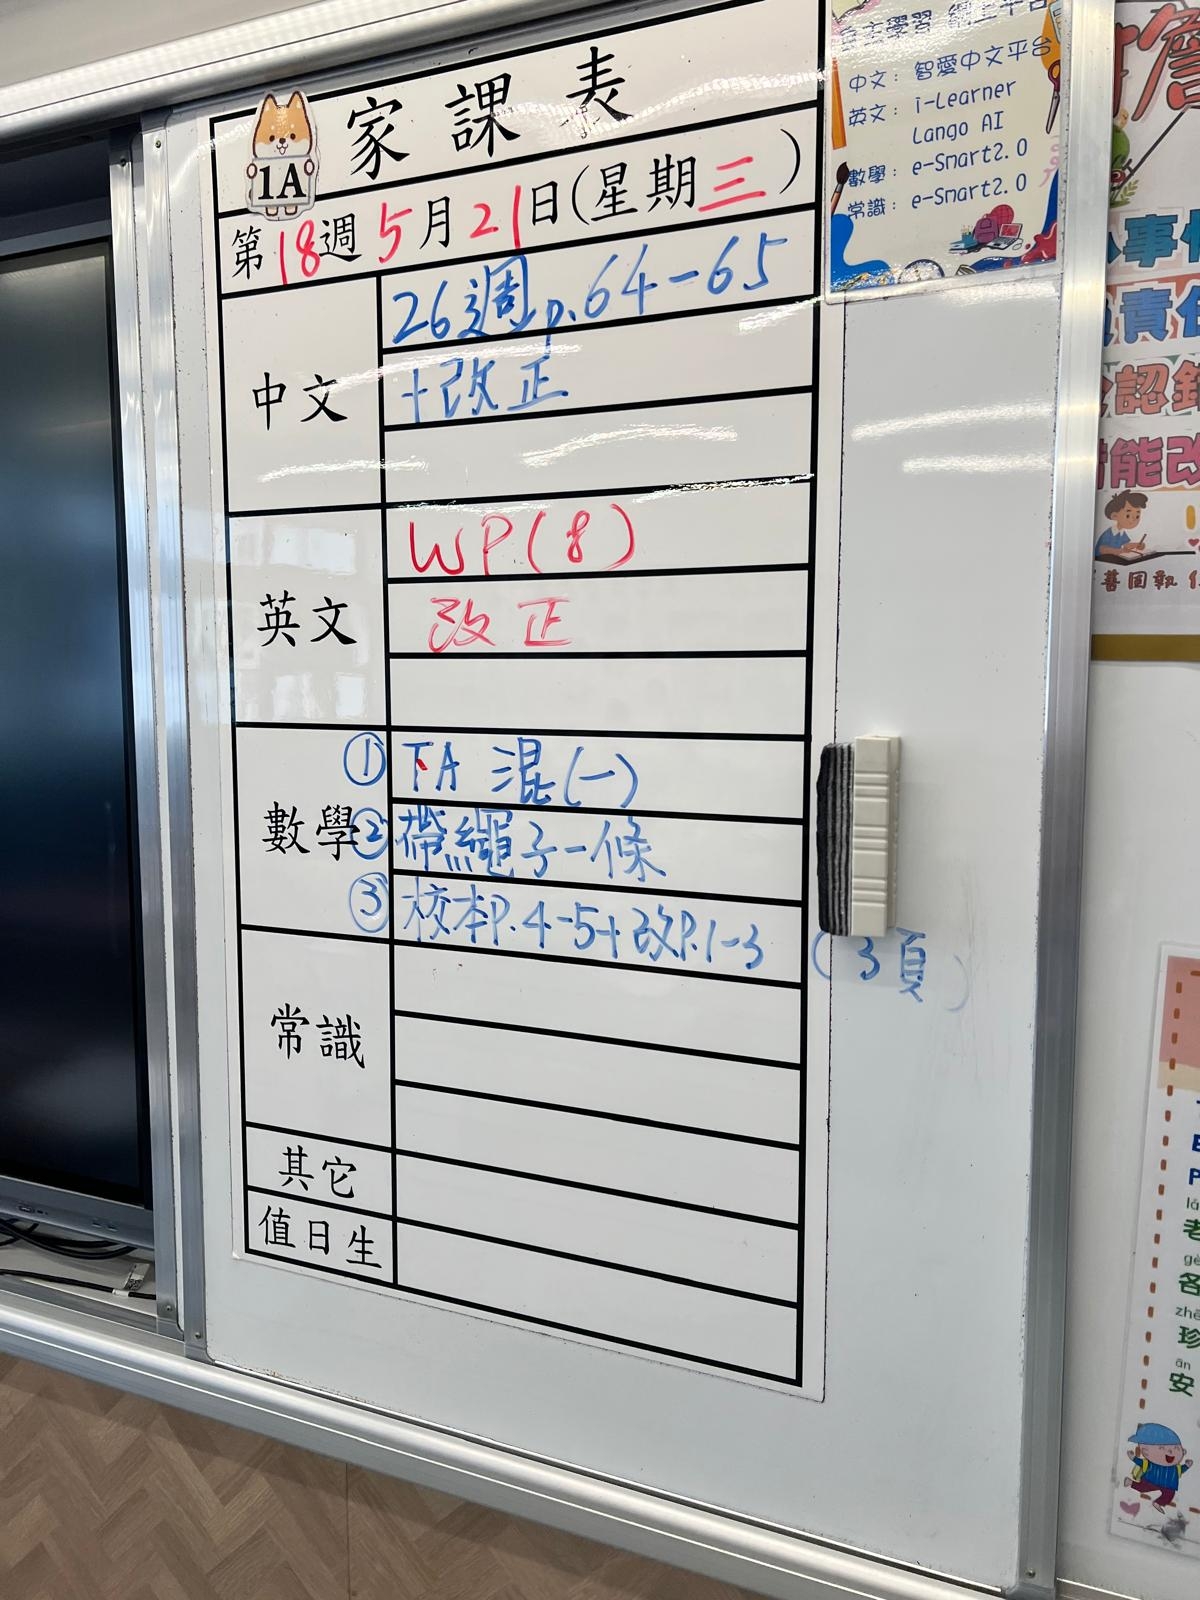 家課表
1A
第18週5月21日(星期三)
中文
26週p.64-65
+改正
英文
WP(8)
改正
數學
① 下A 混(一)
② 帶繩子一條
③ 校本P.4-5+改P.1-3 (3頁)
常識
其它
值日生
自主學習 網上平台
中文：智愛中文平台
英文：i-Learner
Lango AI
數學：e-Smart2.0
常識：e-Smart2.0
事
責任
認錯
能改
善固執
老
各
zhē
珍
ān
安